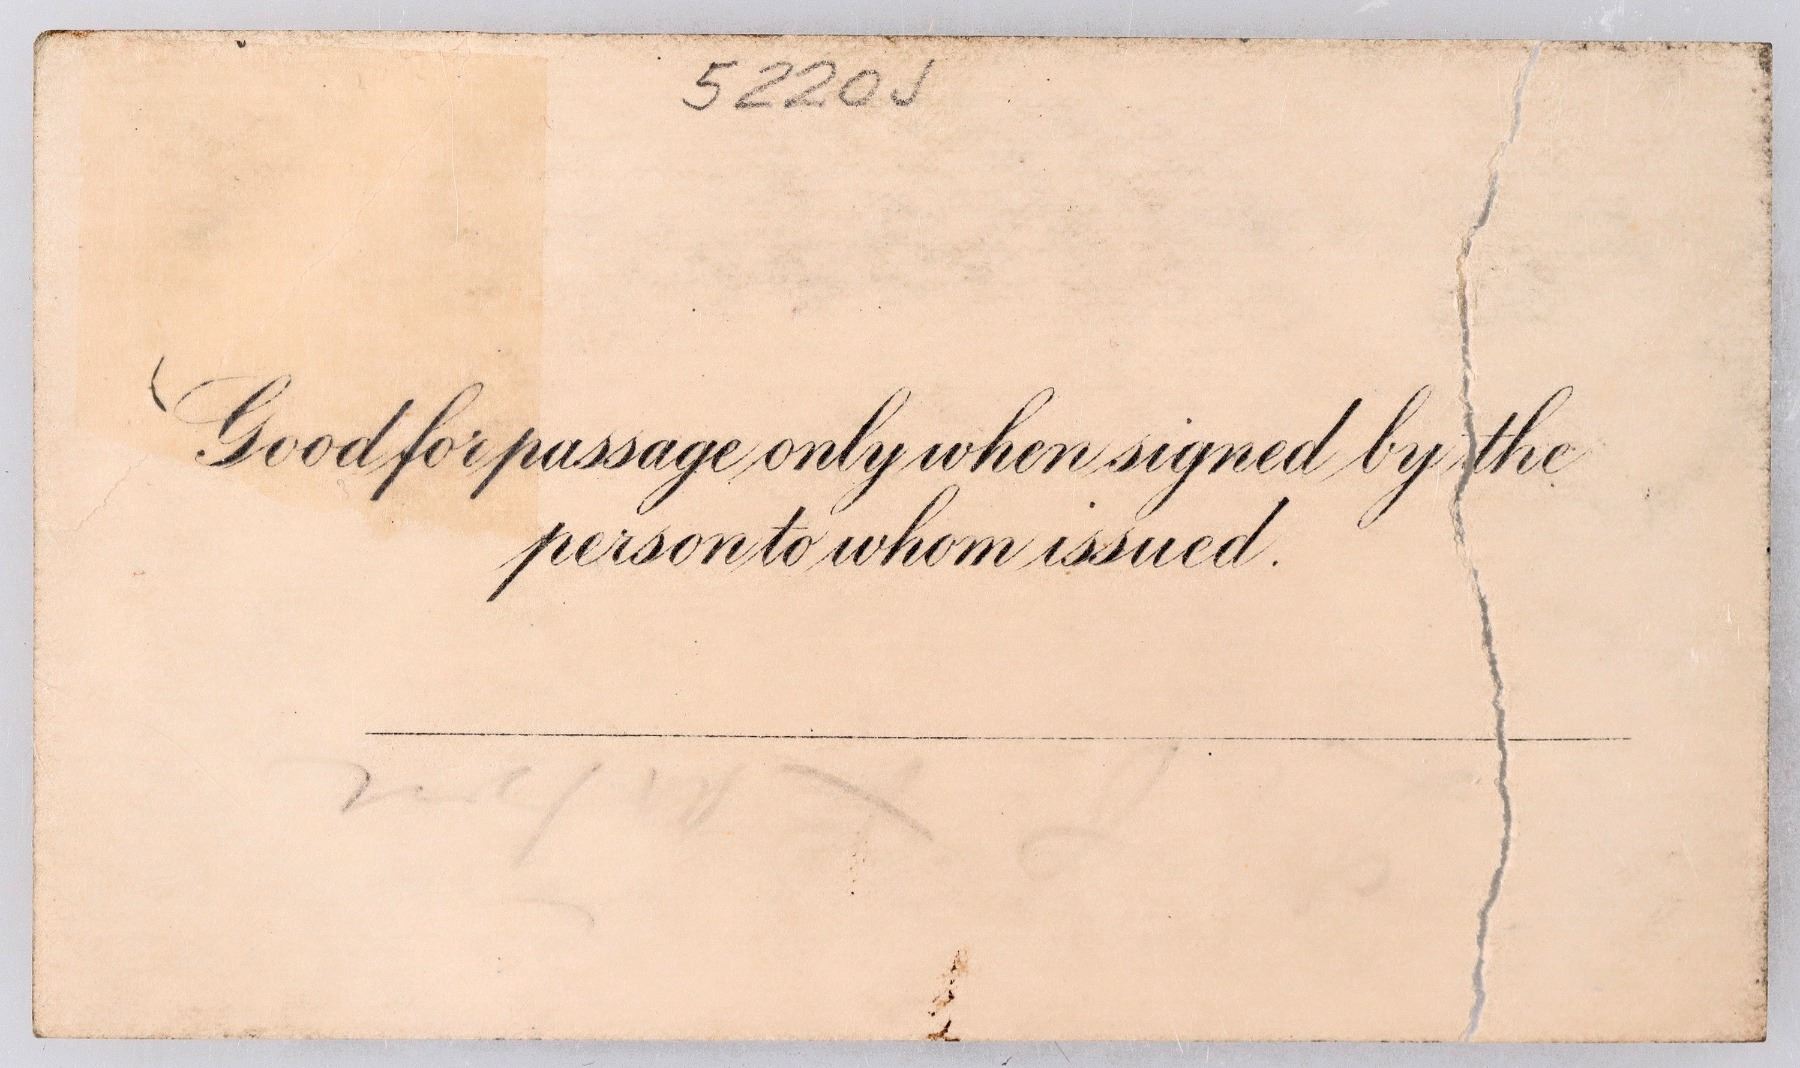 5220J
Good for passage only when signed by the
person to whom issued.